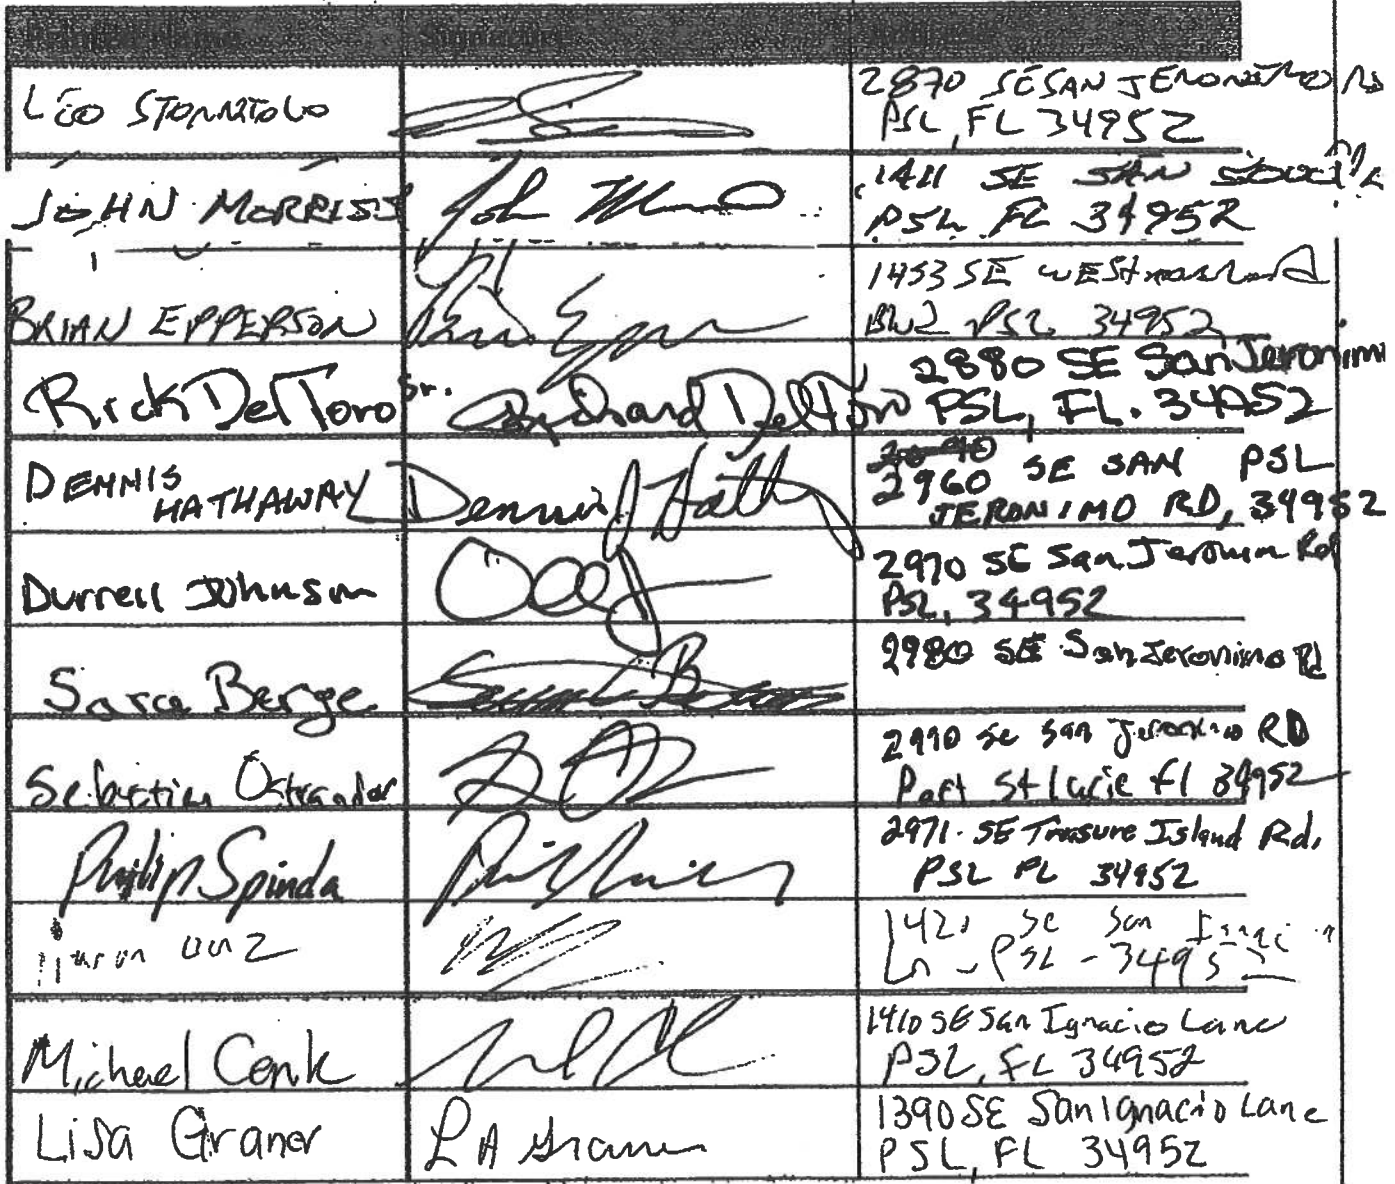 Printed Name Signature
LEO 2870 SE SAN JERONIMO RD
PSL, FL 34952
JOHN MORRISS John 1411 SE SAN
PSL FL 34952
1453 SE
BRIAN EPPERSON BLVD PSL 34952
Rick DelToro Sr. Richard DelToro 2880 SE San Jeronimo
PSL, FL. 34952
DENNIS 2960 SE SAN PSL
HATHAWAY Dennis J Hathy JERONIMO RD, 34952
Durrell Johnson 2970 SE San Jeronimo Rd
PSL, 34952
Sara Berge 2980 SE San Jeronimo Rd
Sebastian Ostrander 2990 Se San Jeronimo RD
Port St Lucie fl 34952
Philip Spinda 2971 SE Treasure Island Rd.
PSL FL 34952
Se San
Ln - PSL - 34952
Michael Cenk 1410 SE San Ignacio Lane
PSL, FL 34952
Lisa Graner L A Graner 1390 SE San Ignacio Lane
PSL, FL 34952